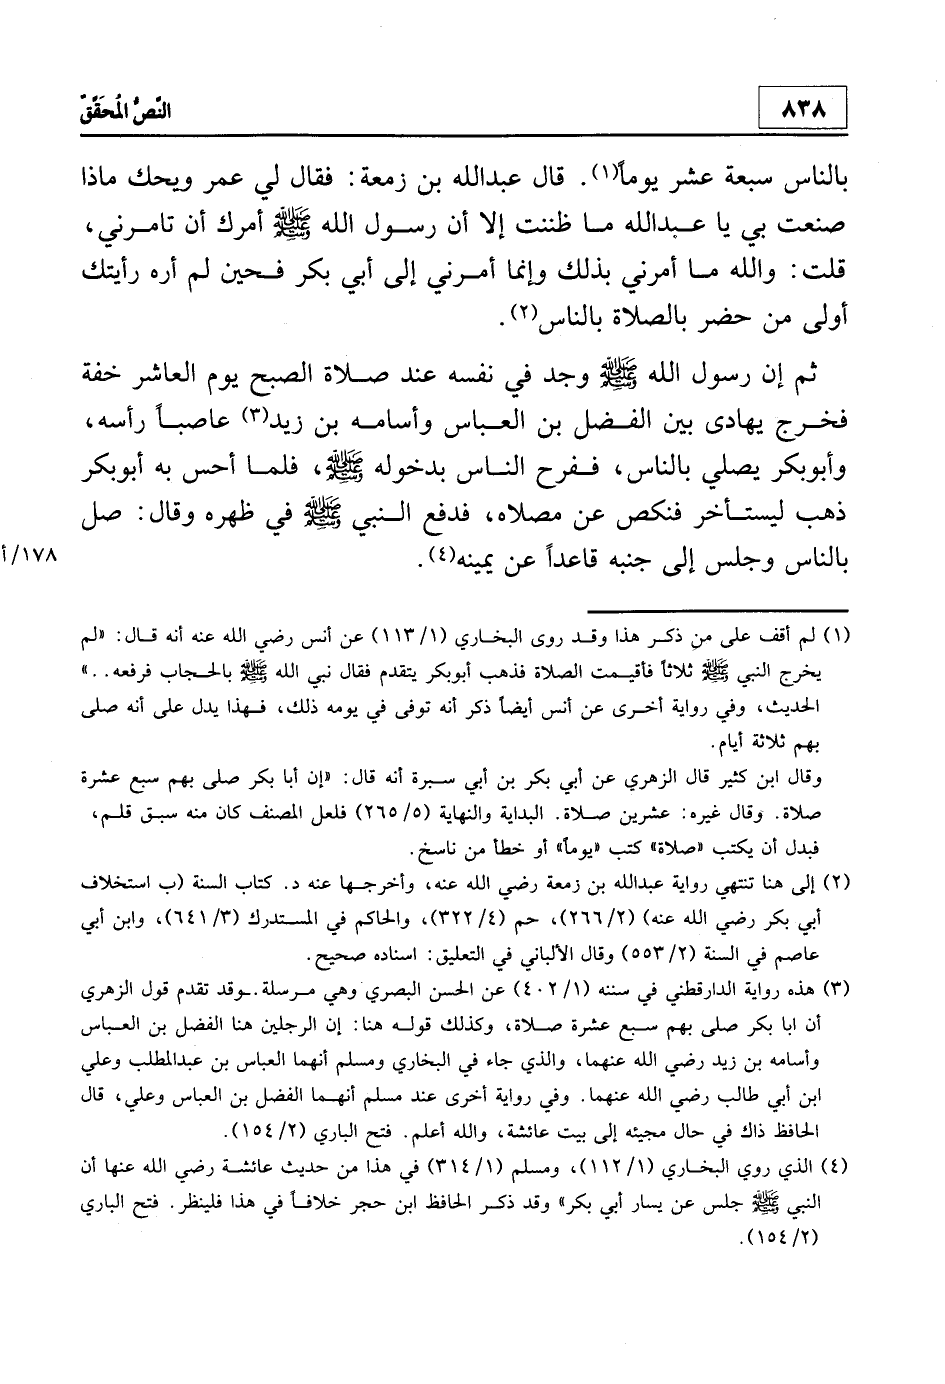 ٨٣٨
النَّصُّ المُحَقَّقْ
بالناس سبعة عشر يوماً(١). قال عبدالله بن زمعة: فقال لي عمر ويحك ماذا
صنعت بي يا عبدالله ما ظننت إلا أن رسول الله ﷺ أمرك أن تامرني،
قلت: والله ما أمرني بذلك وإنما أمرني إلى أبي بكر فحين لم أره رأيتك
أولى من حضر بالصلاة بالناس(٢).
ثم إن رسول الله ﷺ وجد في نفسه عند صلاة الصبح يوم العاشر خفة
فخرج يهادى بين الفضل بن العباس وأسامه بن زيد(٣) عاصباً رأسه،
وأبوبكر يصلي بالناس، ففرح الناس بدخوله ﷺ، فلما أحس به أبوبكر
ذهب ليستأخر فنكص عن مصلاه، فدفع النبي ﷺ في ظهره وقال: صل
بالناس وجلس إلى جنبه قاعداً عن يمينه(٤).
١٧٨/أ
(١) لم أقف على من ذكر هذا وقد روى البخاري (١١٣/١) عن أنس رضي الله عنه أنه قال: «لم
يخرج النبي ﷺ ثلاثاً فأقيمت الصلاة فذهب أبوبكر يتقدم فقال نبي الله ﷺ بالحجاب فرفعه..»
الحديث، وفي رواية أخرى عن أنس أيضاً ذكر أنه توفى في يومه ذلك، فهذا يدل على أنه صلى
بهم ثلاثة أيام.
وقال ابن كثير قال الزهري عن أبي بكر بن أبي سبرة أنه قال: «إن أبا بكر صلى بهم سبع عشرة
صلاة. وقال غيره: عشرين صلاة. البداية والنهاية (٢٦٥/٥) فلعل المصنف كان منه سبق قلم،
فبدل أن يكتب «صلاة» كتب «يوماً» أو خطأ من ناسخ.
(٢) إلى هنا تنتهي رواية عبدالله بن زمعة رضي الله عنه، وأخرجها عنه د. كتاب السنة (ب استخلاف
أبي بكر رضي الله عنه) (٢٦٦/٢)، حم (٣٢٢/٤)، والحاكم في المستدرك (٦٤١/٣)، وابن أبي
عاصم في السنة (٥٥٣/٢) وقال الألباني في التعليق: اسناده صحيح.
(٣) هذه رواية الدارقطني في سننه (٤٠٢/١) عن الحسن البصري وهي مرسلة. وقد تقدم قول الزهري
أن ابا بكر صلى بهم سبع عشرة صلاة، وكذلك قوله هنا: إن الرجلين هنا الفضل بن العباس
وأسامه بن زيد رضي الله عنهما، والذي جاء في البخاري ومسلم أنهما العباس بن عبدالمطلب وعلي
ابن أبي طالب رضي الله عنهما. وفي رواية أخرى عند مسلم أنهما الفضل بن العباس وعلي، قال
الحافظ ذاك في حال مجيئه إلى بيت عائشة، والله أعلم. فتح الباري (١٥٤/٢).
(٤) الذي روي البخاري (١١٢/١)، ومسلم (٣١٤/١) في هذا من حديث عائشة رضي الله عنها أن
النبي ﷺ جلس عن يسار أبي بكر» وقد ذكر الحافظ ابن حجر خلافاً في هذا فلينظر. فتح الباري
(١٥٤/٢).